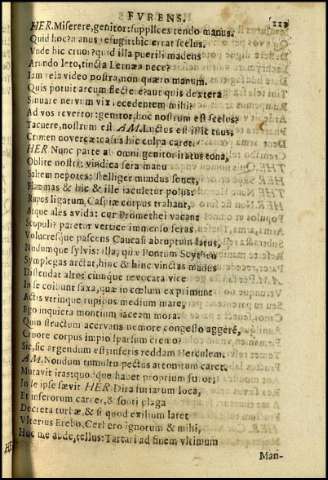 FVRENS.
HER. Miserere, genitor: supplices tendo manus.
Quid hoc? manus refugit: hic errat scelus.
Vnde hic cruor? quid illa puerili madens
Arundo leto, tincta Lernæa nece?
Iam tela video nostra, non quæro manum.
Quis potuit arcum flectere? aut quis dextera
Sinuare neruum vix recedentem mihi?
Ad vos revertor: genitor, hoc nostrum est scelus?
Tacuere, nostrum est. AM. Luctus est istic tuus,
Crimen novercæ: casus hic culpa caret.
HER. Nunc parte ab omni genitor iratus tona,
Oblite nostri: vindica sera manu
Saltem nepotes: stelliger mundus sonet,
Flammas & hic & ille iaculetur polus:
Rupes ligatum Caspiæ corpus trahant,
Atque ales avida: cur Promethei vacant
Scopuli? paretur vertice immenso feras
Volucresque pascens Caucasi abruptum latus,
Nudumque sylvis: illa, quæ Pontum Scythen
Symplegas arctat, hinc & hinc vinctas manus
Distendat alto: cumque revocata vice
In se coibunt saxa, quæ in cœlum exprimunt
Actis vtrinque rupibus medium mare,
Ego inquieta montium iaceam mora.
Quin structum acervans nemore congesto aggerē,
Cruore corpus impio sparsum cremo?
Sic, sic agendum est: inferis reddam Herculem.
AM. Nondum tumultu pectus attonitum caret.
Mutavit iras: quodque habet proprium furor,
In se ipse sævit. HER. Dira furiarum loca,
Et inferorum carcer, & sonti plaga
Decreta turbæ, & si quod exilium latet
Vlterius Erebo, Cerbero ignotum & mihi,
Huc me abde, tellus: Tartari ad finem vltimum
Man-